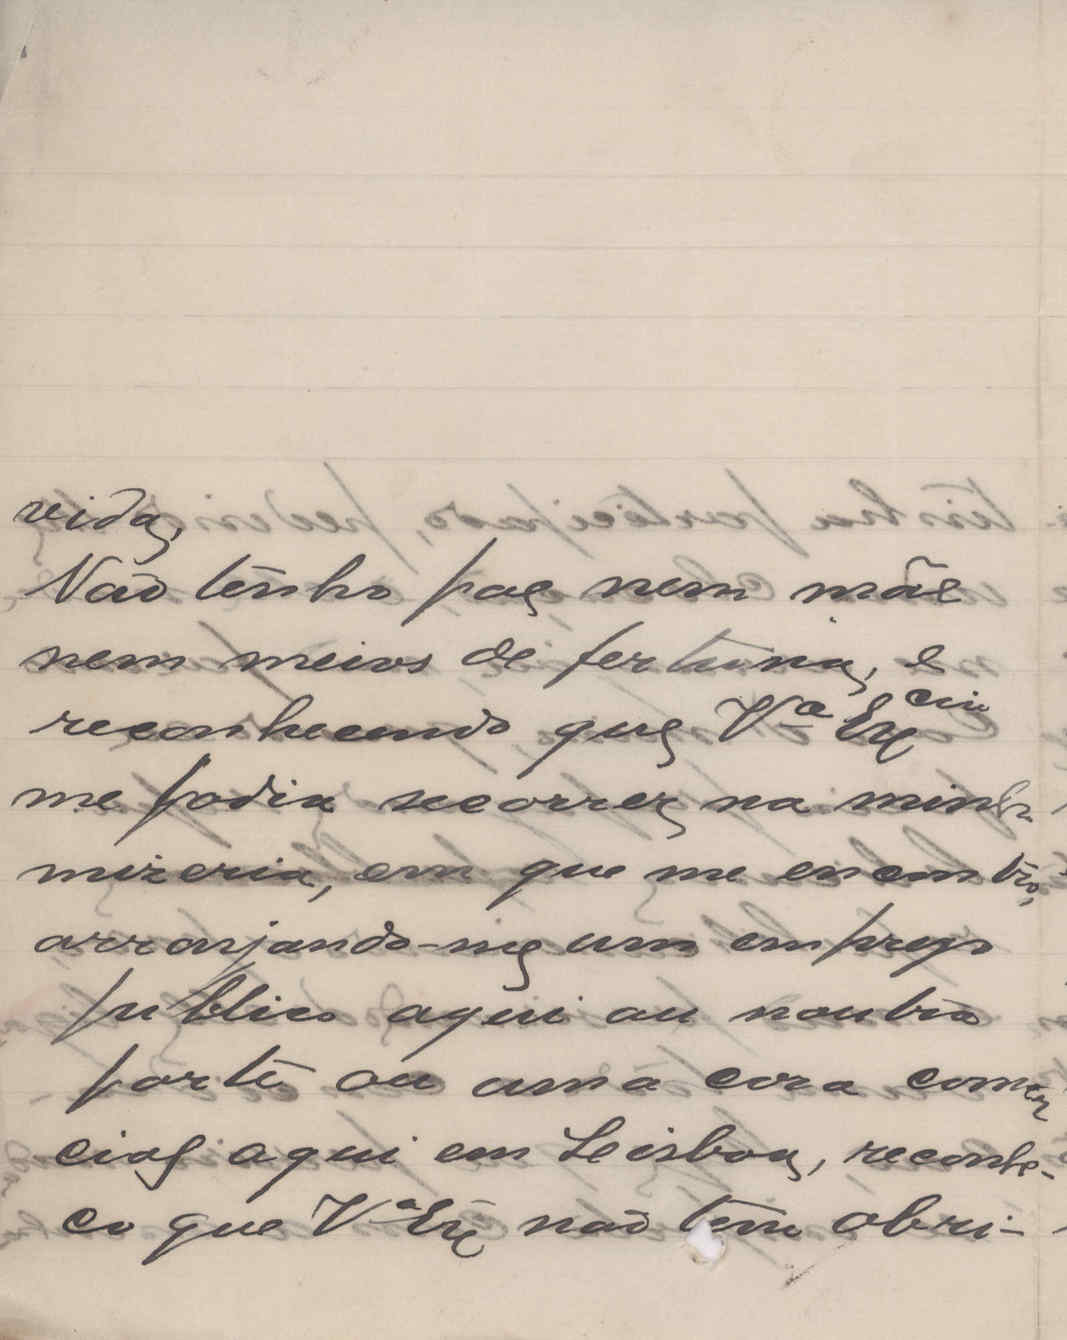 vida,
Não tenho pae nem mãe
nem meios de fertuna, e
reconhecendo que V.ª Ex.cia
me podia secorrer na minha
mizeria, em que me encontro,
arranjando-me um emprego
publico aqui ou noutra
parte ou uma coza comer
cial aqui em Leisboa, reconhe-
co que Vª Exª não tem obri-